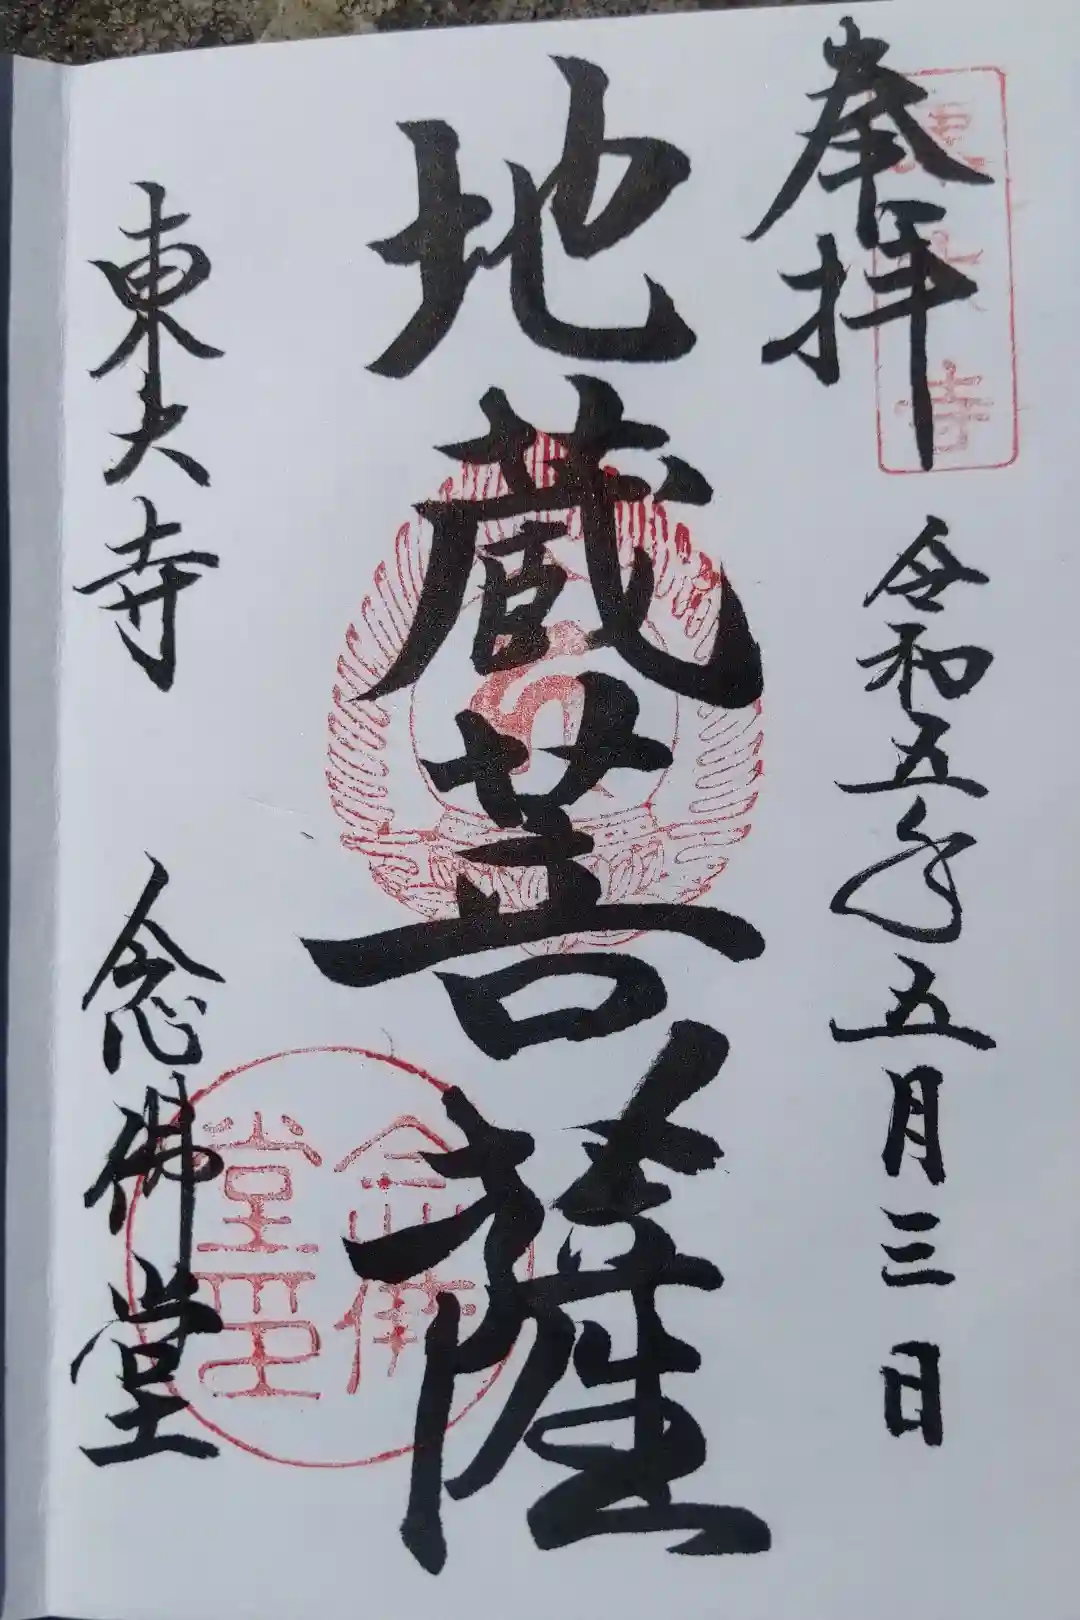 奉拝
東大寺
令和五年五月三日
地蔵菩薩
東大寺 念佛堂
念佛堂印